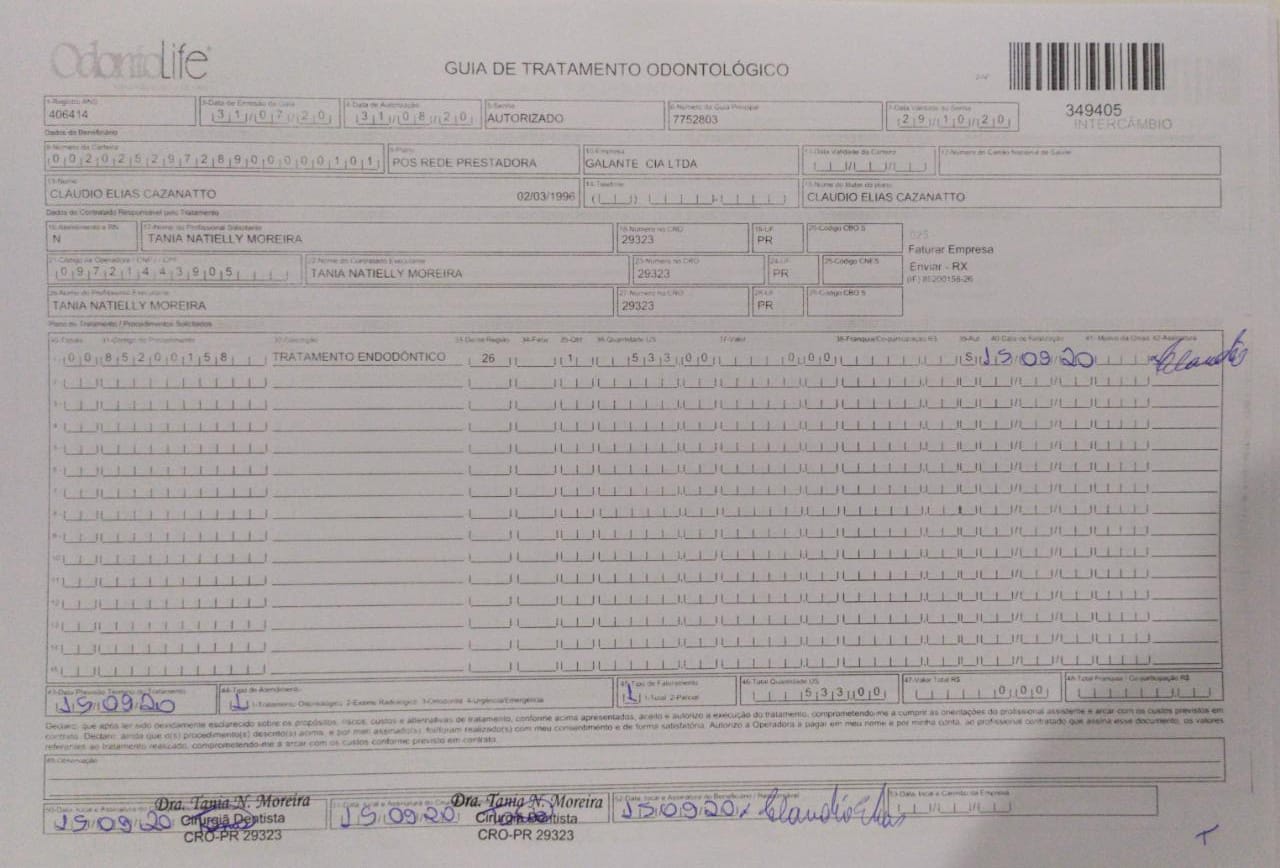 OdontoLife
GUIA DE TRATAMENTO ODONTOLÓGICO
349405
INTERCÂMBIO
1-Registro ANS
406414
3-Data de Emissão da Guia
31/07/20
4-Data de Autorização
31/08/20
5-Senha
AUTORIZADO
6-Número da Guia Principal
7752803
7-Data Validade da Senha
29/10/20
Dados do Beneficiário
8-Número da Carteira
00202529728900000101
9-Plano
POS REDE PRESTADORA
10-Empresa
GALANTE CIA LTDA
11-Data Validade da Carteira
12-Número do Cartão Nacional de Saúde
13-Nome
CLAUDIO ELIAS CAZANATTO 02/03/1996
14-Telefone
15-Nome do titular do plano
CLAUDIO ELIAS CAZANATTO
Dados do Contratado Responsável pelo Tratamento
16-Atendimento a RN
N
17-Nome do Profissional Solicitante
TANIA NATIELLY MOREIRA
18-Número no CRO
29323
19-UF
PR
20-Código CBO S
025 -
Faturar Empresa
Enviar - RX
(IF) 85200158-26
21-Código na Operadora / CNPJ / CPF
09721443905
22-Nome do Contratado Executante
TANIA NATIELLY MOREIRA
23-Número no CRO
29323
24-UF
PR
25-Código CNES
26-Nome do Profissional Executante
TANIA NATIELLY MOREIRA
27-Número no CRO
29323
28-UF
PR
29-Código CBO S
Plano de Tratamento / Procedimentos Solicitados
30-Tabela 31-Código do Procedimento 32-Descrição 33-Dente/Região 34-Face 35-Qtd 36-Quantidade US 37-Valor 38-Franquia/Co-participação R$ 39-Aut 40-Data de Realização 41-Motivo da Glosa 42-Assinatura
00 85200158 TRATAMENTO ENDODÔNTICO 26 1 533 00 0 00 S 15/09/20 Claudio
2-
3-
4-
5-
6-
7-
8-
9-
10-
11-
12-
13-
14-
15-
43-Data Previsão Término do Tratamento
15/09/20
44-Tipo de Atendimento
1 1-Tratamento Odontológico 2-Exame Radiológico 3-Ortodontia 4-Urgência/Emergência
45-Tipo de Faturamento
1 1-Total 2-Parcial
46-Total Quantidade US
533 00
47-Valor Total R$
0 00
48-Total Franquia / Co-participação R$
Declaro, que após ter sido devidamente esclarecido sobre os propósitos, riscos, custos e alternativas de tratamento, conforme acima apresentados, aceito e autorizo a execução do tratamento, comprometendo-me a cumprir as orientações do profissional assistente e arcar com os custos previstos em
contrato. Declaro, ainda que o(s) procedimento(s) descrito(s) acima, e por mim assinado(s), foi/foram realizado(s) com meu consentimento e de forma satisfatória. Autorizo a Operadora a pagar em meu nome e por minha conta, ao profissional contratado que assina esse documento, os valores
referentes ao tratamento realizado, comprometendo-me a arcar com os custos conforme previsto em contrato.
49-Observação
50-Data, local e Assinatura do
15/09/20
Dra. Tania N. Moreira
Cirurgiã Dentista
CRO-PR 29323
51-Data, local e Assinatura do
15/09/20
Dra. Tania N. Moreira
Cirurgiã Dentista
CRO-PR 29323
52-Data, local e Assinatura do Beneficiário / Responsável
15/09/20 x Claudio Elias
53-Data, local e Carimbo da Empresa
T